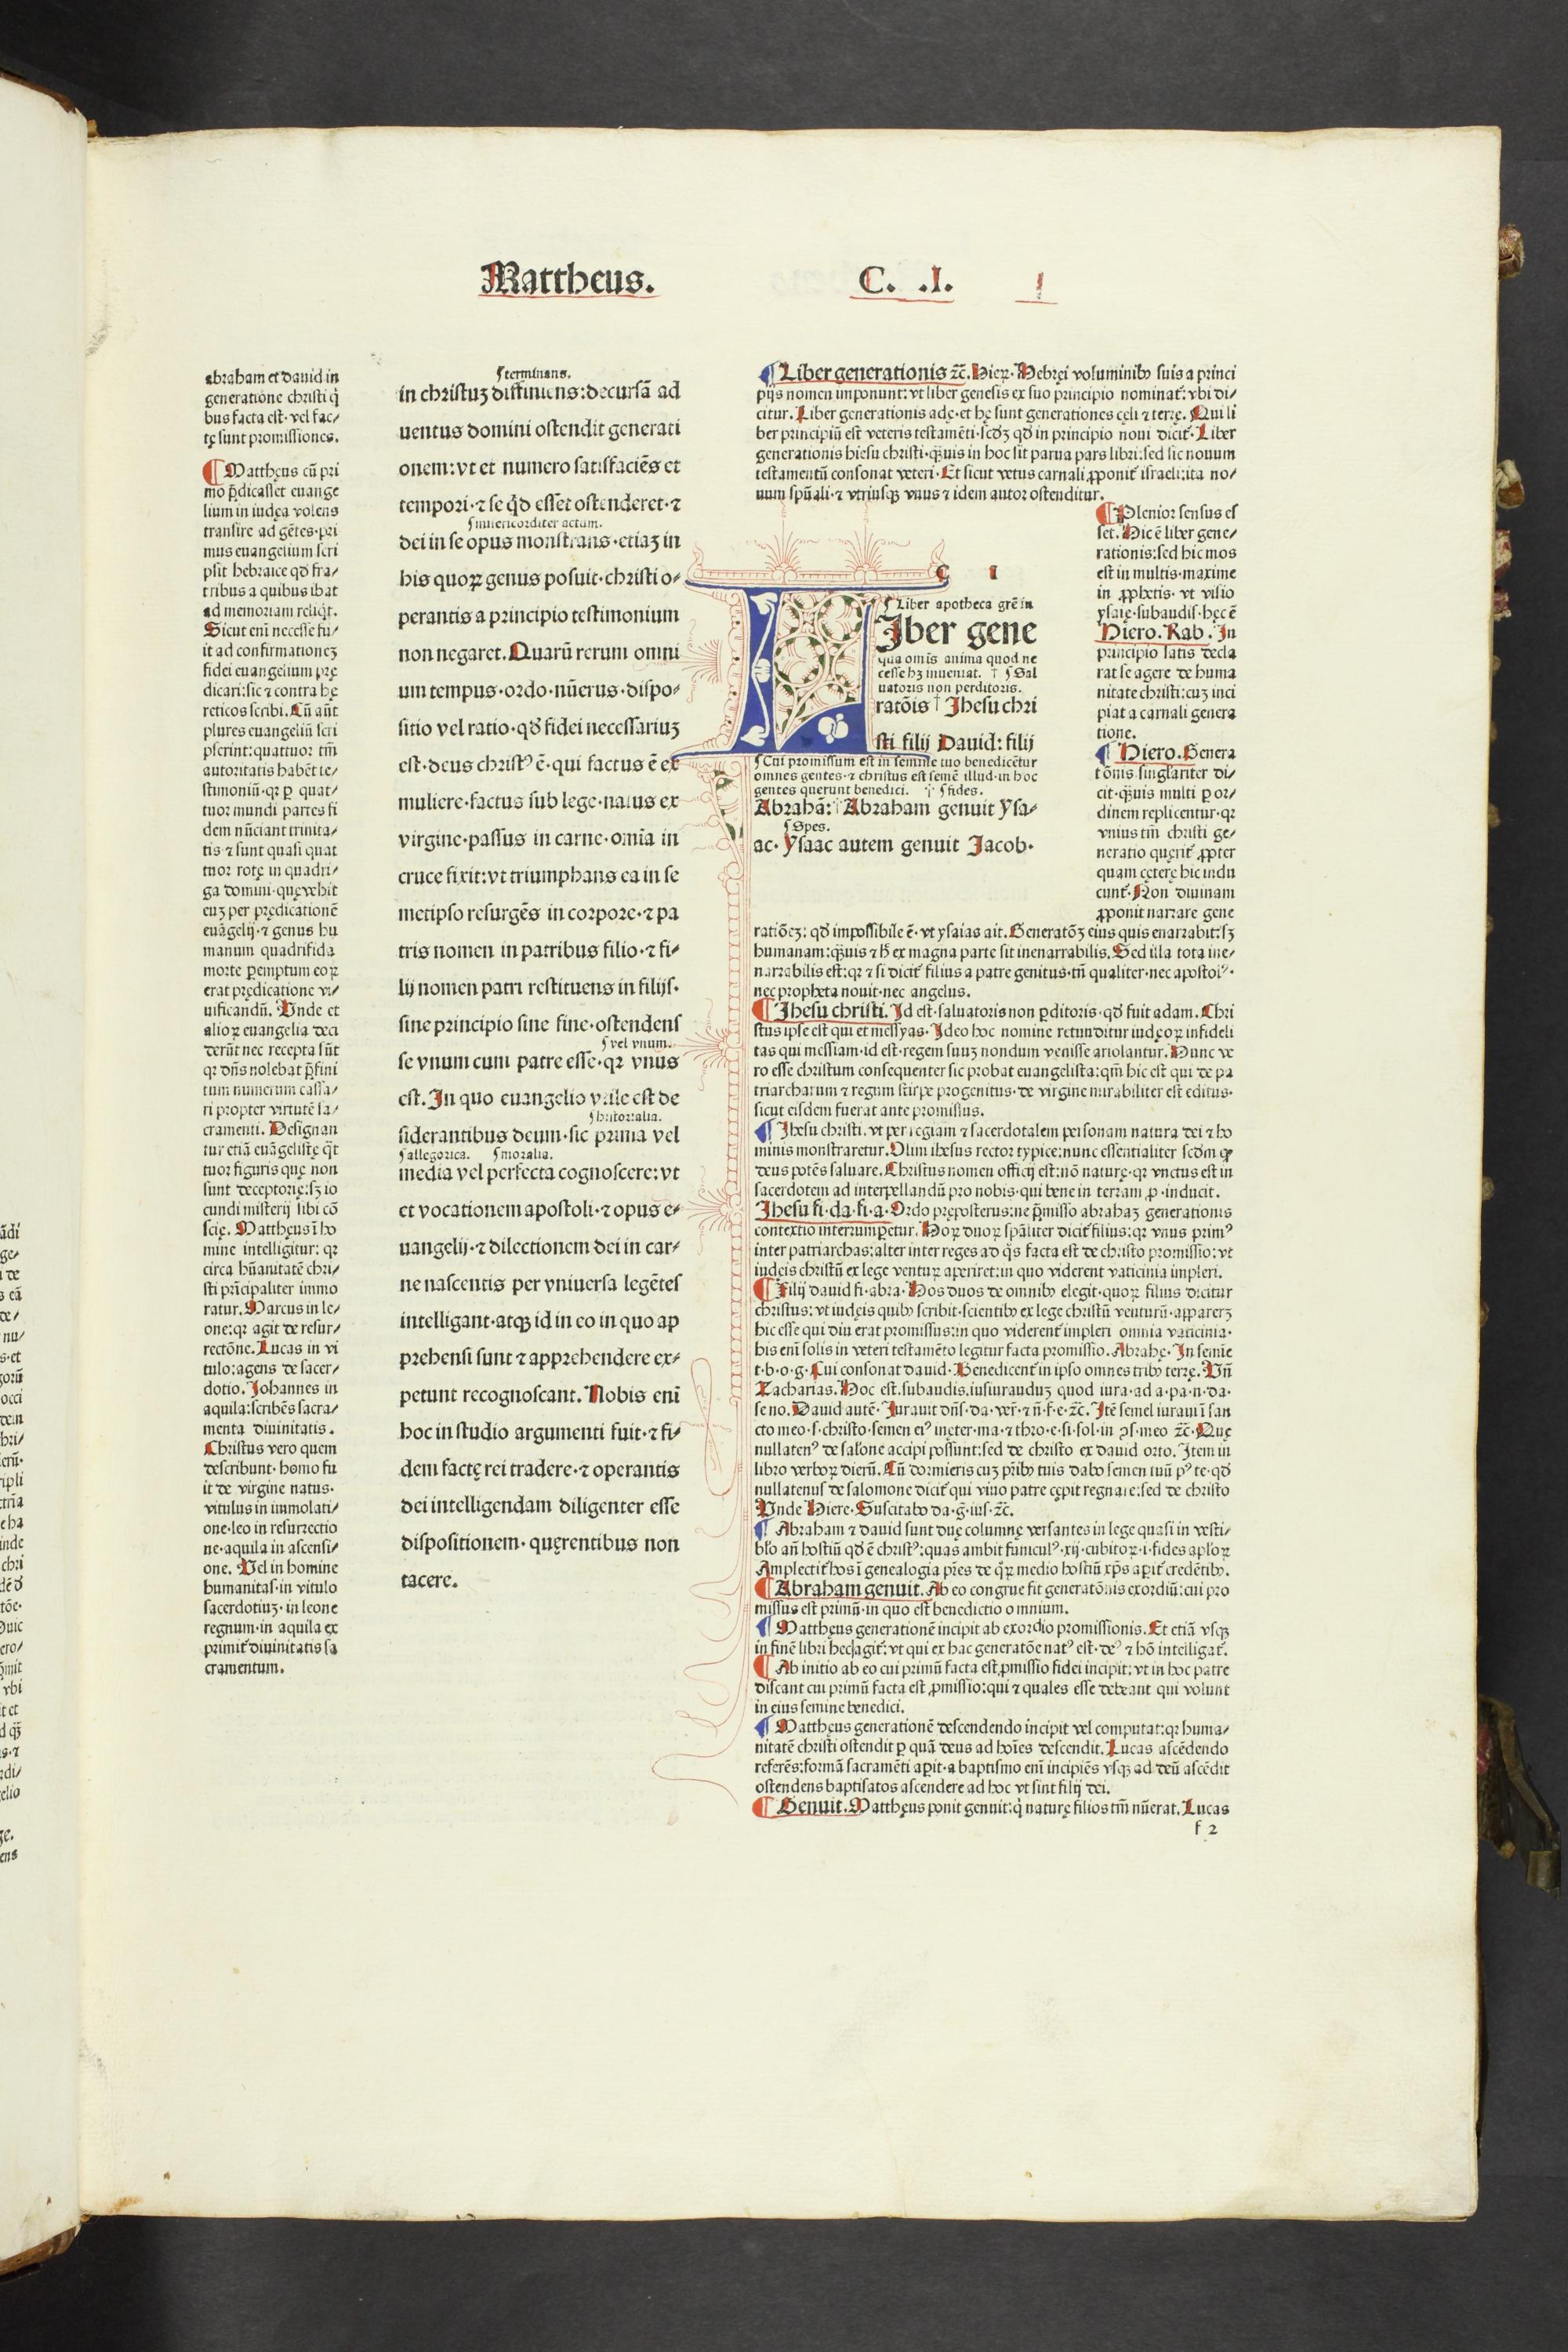 Mattheus. C. .I. 1
abraham et dauid in
generatione christi q̄
bus facta est· vel fac/
tę sunt promissiones.
¶ Matthęus cū pri
mo p̄dicasset euange
lium in iudęa volens
transire ad gētes·pri
mus euangelium scri
psit hebraice qd̄ fra/
tribus a quibus ibat
ad memoriam reliq̄t.
Sicut eni necesse fu/
it ad confirmationeʒ
fidei euangelium prę
dicari:sic ⁊ contra hę
reticos scribi. Cū aūt
plures euangeliū scri
pserint:quattuor tm̄
autoritatis habēt te/
stimoniū·qꝛ ꝑ quat/
tuor mundi partes fi
dem nūciant trinita/
tis·⁊ sunt quasi quat
tuor rotę in quadri/
ga domini·quę vehit
euʒ per prędicationē
euāgelij·⁊ genus hu
manum quadrifida
morte ꝑemptum eoꝝ
erat prędicatione vi/
uificandū. Unde et
alioꝝ euangelia deci
derūt nec recepta sūt
qꝛ dn̄s nolebat p̄fini
tum numerum cassa/
ri propter virtutē sa/
cramenti. Designan
tur etiā euāgelistę q̄t
tuor figuris quę non
sunt deceptorię:sʒ io
cundi misterij sibi cō
scię. Matthęus ī ho
mine intelligitur: qꝛ
circa hūanitatē chri/
sti prīcipaliter immo
ratur. Marcus in le/
one:qꝛ agit de resur/
rectōne. Lucas in vi
tulo:agens de sacer/
dotio. Johannes in
aquila:scribēs sacra/
menta diuinitatis.
Christus vero quem
describunt·homo fu
it de virgine natus·
vitulus in immolati/
one·leo in resurrectio
ne·aquila in ascensi/
one. Vel in homine
humanitas·in vitulo
sacerdotiuʒ·in leone
regnum·in aquila ex
primit̄ diuinitatis sa
cramentum.
¶ terminans.
in christuʒ diffiniens:decursā ad
uentus domini ostendit generati
onem:vt et numero satisfaciēs et
tempori·⁊ se qd̄ esset ostenderet·⁊
¶ misericorditer actum.
dei in se opus monstrans·etiaʒ in
his quoꝝ genus posuit·christi o/
perantis a principio testimonium
non negaret. Quarū rerum omni
um tempus·ordo·nūerus·dispo/
sitio vel ratio·qd̄ fidei necessariuʒ
est·deus christꝰ ē·qui factus ē ex
muliere·factus sub lege·natus ex
virgine·passus in carne·omīa in
cruce fixit:vt triumphans ea in se
metipso resurgēs in corpore·⁊ pa
tris nomen in patribus filio·⁊ fi/
lij nomen patri restituens in filijs·
sine principio sine fine·ostendens
¶ vel vnum.
se vnum cum patre esse·qꝛ vnus
est. In quo euangelio vtile est de
¶ historialia.
siderantibus deum·sic prima vel
¶ allegorica. ¶ moralia.
media vel perfecta cognoscere:vt
et vocationem apostoli·⁊ opus e/
uangelij·⁊ dilectionem dei in car/
ne nascentis per vniuersa legētes
intelligant·atqꝫ id in eo in quo ap
prehensi sunt ⁊ apprehendere ex/
petunt recognoscant. Nobis eni
hoc in studio argumenti fuit·⁊ fi/
dem factę rei tradere·⁊ operantis
dei intelligendam diligenter esse
dispositionem·quęrentibus non
tacere.
¶ Liber generationis ⁊c̄. Hieꝝ. Hebręi voluminibꝰ suis a princi
pijs nomen imponunt: vt liber genesis ex suo principio nominat̄: vbi di/
citur. Liber generationis adę·et hę sunt generationes cęli ⁊ terrę. Qui li
ber principiū est veteris testamēti·scdʒ qd̄ in principio noui dicit̄· Liber
generationis hiesu christi·q̄uis in hoc sit parua pars libri:sed sic nouum
testamentū consonat veteri· Et sicut vetus carnali ꝓponit̄ israeli:ita no/
uum spūali·⁊ vtriusqꝫ vnus ⁊ idem autor ostenditur.
¶ Plenior sensus es
set. Hic ē liber gene/
rationis:sed hic mos
est in multis·maxime
in ꝓphetis· vt visio
ysaię·subaudis·hęc ē
Hiero. Rab. In
principio satis decla
rat se agere de huma
nitate christi:cuʒ inci
piat a carnali genera
tione.
¶ Hiero. Genera
tōnis singlariter di/
cit·q̄uis multi ꝑ or/
dinem replicentur·qꝛ
vnius tm̄ christi ge/
neratio querit̄ ꝓpter
quam cęterę hic indu
cunt̄· Non diuinam
ꝓponit narrare gene
C I
¶ Liber apotheca grē in
Iber gene
qua omīs anima quod ne
cesse hʒ inueniat. † ¶ Sal
uatoris non perditoris.
ratōis † Jhesu chri
sti filij Dauid: filij
¶ Cui promissum est in semine tuo benedicētur
omnes gentes·⁊ christus est semē illud·in hoc
gentes querunt benedici. † ¶ fides.
Abrahā: † Abraham genuit Ysa-
¶ Spes.
ac· Ysaac autem genuit Jacob·
ratiōeʒ: qd̄ impossibile ē· vt ysaias ait. Generatōʒ eius quis enarrabit:sʒ
humanam:q̄uis ⁊ h̄ ex magna parte sit inenarrabilis. Sed illa tota ine/
narrabilis est:qꝛ ⁊ si dicit̄ filius a patre genitus·tn̄ qualiter·nec apostolꝰ·
nec propheta nouit·nec angelus.
¶ Jhesu christi. Id est·saluatoris non ꝑditoris·qd̄ fuit adam. Chri
stus ipse est qui et messyas· Ideo hoc nomine retunditur iudęoꝝ infideli
tas qui messiam·id est·regem suuʒ nondum venisse ariolantur. Hunc ve
ro esse christum consequenter sic probat euangelista:qm̄ hic est qui de pa
triarcharum ⁊ regum stirpe progenitus·de virgine mirabiliter est editus·
sicut eisdem fuerat ante promissus.
¶ Jhesu christi. vt per regiam ⁊ sacerdotalem personam natura dei ⁊ ho
minis monstraretur. Olim ihesus rector typice:nunc essentialiter scd̄m ꝙ
deus potēs saluare. Christus nomen officij est:nō naturę·qꝛ vnctus est in
sacerdotem ad interpellandū pro nobis·qui bene in terram ꝓ·inducit.
Jhesu fi·da·fi·a· Ordo pręposterus:ne p̄misso abrahaʒ generationis
contextio interrumꝑetur. Hoꝝ duoꝝ spāliter dicit̄ filius:qꝛ vnus primꝰ
inter patriarchas:alter inter reges ad q̄s facta est de christo promissio:vt
iudęis christū ex lege ventuꝝ aperiret:in quo viderent vaticinia impleri.
¶ Filij dauid fi·abra· Hos duos de omnibꝰ elegit·quoꝝ filius dicitur
christus: vt iudęis quibꝰ scribit·scientibꝰ ex lege christū venturū·apparerʒ
hic esse qui diu erat promissus:in quo viderent̄ impleri omnia vaticinia·
his eni solis in veteri testamēto legitur facta promissio. Abrahę· In semīe
t·b·o·g· Cui consonat dauid· Benedicent̄ in ipso omnes tribꝰ terrę. Un̄
Zacharias. Hoc est.subaudis.iusiurauduʒ quod iura·ad a·pa·n·da·
se no. Dauid autē· Jurauit dn̄s·da·ver̄·⁊ n̄·f·e·⁊c̄. Itē semel iuraui ī san
cto meo·s·christo·semen eiꝰ in eter·ma·⁊ thro·e·si·sol·in ɔs·meo ⁊c̄· Quę
nullatenꝰ de salōne accipi possunt:sed de christo ex dauid orto. Item in
libro verboꝝ dierū. Cū dormieris cuʒ prībꝰ tuis dabo semen tuū pꝰ te·qd̄
nullatenus de salomone dicit̄ qui viuo patre cępit regnare:sed de christo
Unde Hiere· Suscitabo da·ḡ·ius·⁊c̄.
¶ Abraham ⁊ dauid sunt duę columnę versantes in lege quasi in vesti/
bl̄o an̄ hostiū qd̄ ē christꝰ:quas ambit funiculꝰ·xij·cubitoꝝ·i·fides apl̄oꝝ
Amplectit̄ hos ī genealogia pr̄es de q̄ꝝ medio hostiū xp̄s aꝑit̄ credētibꝰ.
¶ Abraham genuit. Ab eo congrue fit generatōnis exordiū:cui pro
missus est primū·in quo est benedictio omnium.
¶ Matthęus generationē incipit ab exordio promissionis. Et etiā vsqꝫ
in finē libri hec agit̄: vt qui ex hac generatōe natꝰ est·deꝰ ⁊ hō intelligat̄.
¶ Ab initio ab eo cui primū facta est ꝓmissio fidei incipit: vt in hoc patre
discant cui primū facta est ꝓmissio:qui ⁊ quales esse debeant qui volunt
in eius semine benedici.
¶ Matthęus generationē descendendo incipit vel computat:qꝛ huma/
nitatē christi ostendit ꝑ quā deus ad hoīes descendit. Lucas ascēdendo
referēs:formā sacramēti aꝑit·a baptismo eni incipiēs vsqꝫ ad deū ascēdit
ostendens baptisatos ascendere ad hoc vt sint filij dei.
¶ Genuit. Matthęus ponit genuit:q̄ naturę filios tm̄ nūerat. Lucas
f 2